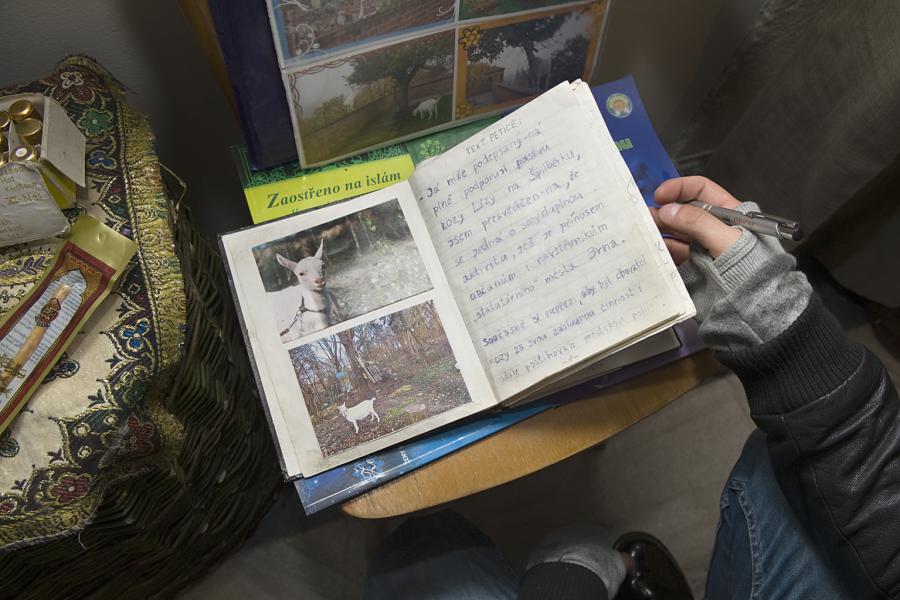 Zaostřeno na islám
TEXT PETICE:
Já níže podepsaný-ná
plně podporuji pastvu
kozy Lízy na Špilberku,
jsem přesvědčen-na, že
se jedná o smysluplnou
aktivitu, jež je přínosem
občanům i návštěvníkům
statutárního města Brna.
současně si nepřeji, aby byl chovatel
kozy za svou záslužnou činnost i
dále
-1-
ŽENY